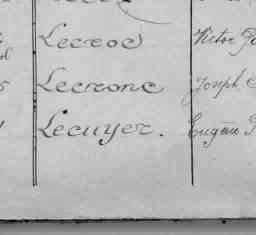 Lecroc Victor
Lecrone Joseph
Lecuyer. Eugène